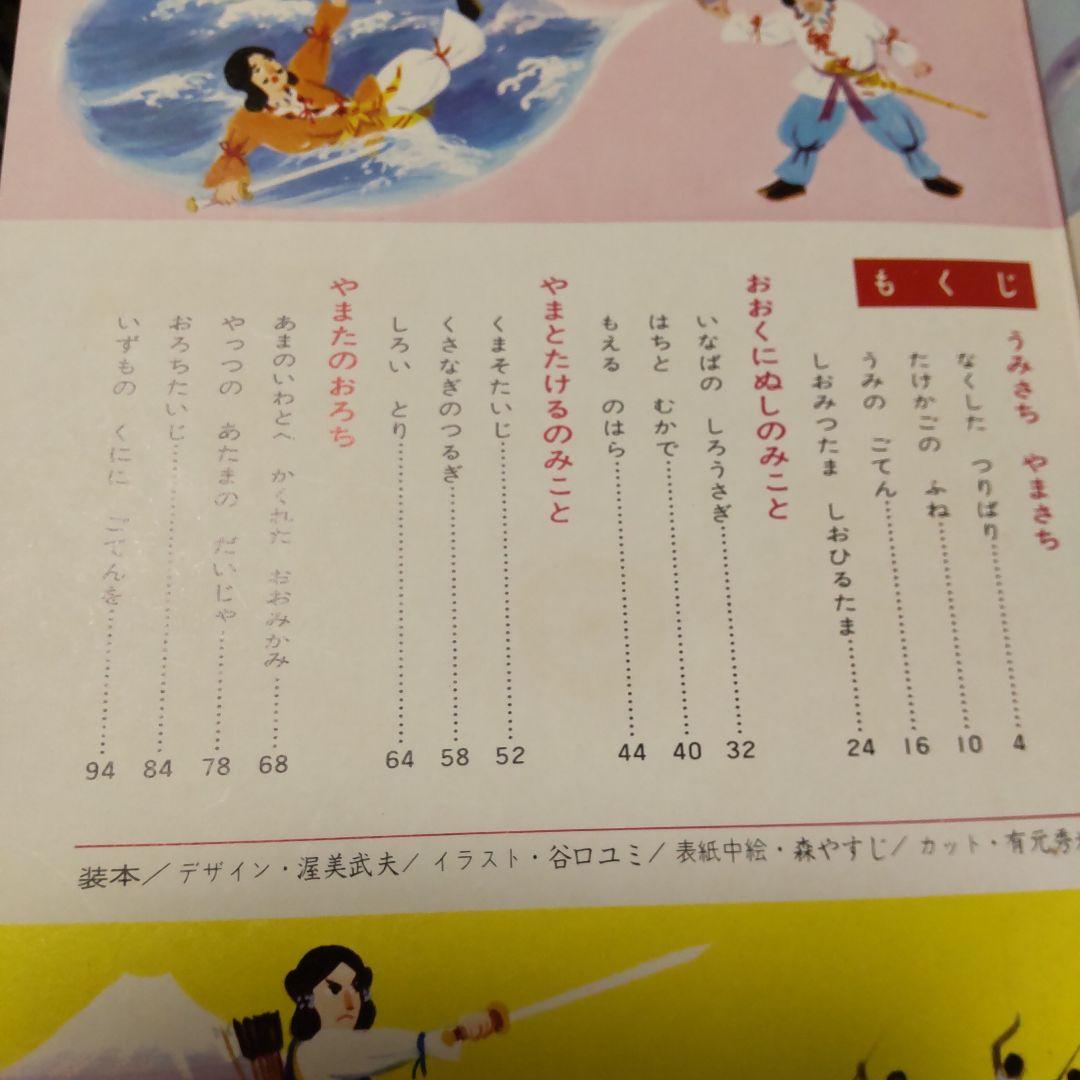 もくじ
うみさち やまさち
なくした つりばり……4
たけかごの ふね……10
うみの ごてん……16
しおみつたま しおひるたま……24
おおくにぬしのみこと
いなばの しろうさぎ……32
はちと むかで……40
もえる のはら……44
やまとたけるのみこと
くまそたいじ……52
くさなぎのつるぎ……58
しろい とり……64
やまたのおろち
あまのいわとへ かくれた おおみかみ……68
やっつの あたまの だいじゃ……78
おろちたいじ……84
いずもの くにに ごてんを……94
装本／デザイン・渥美武夫／イラスト・谷口ユミ／表紙中絵・森やすじ／カット・有元秀